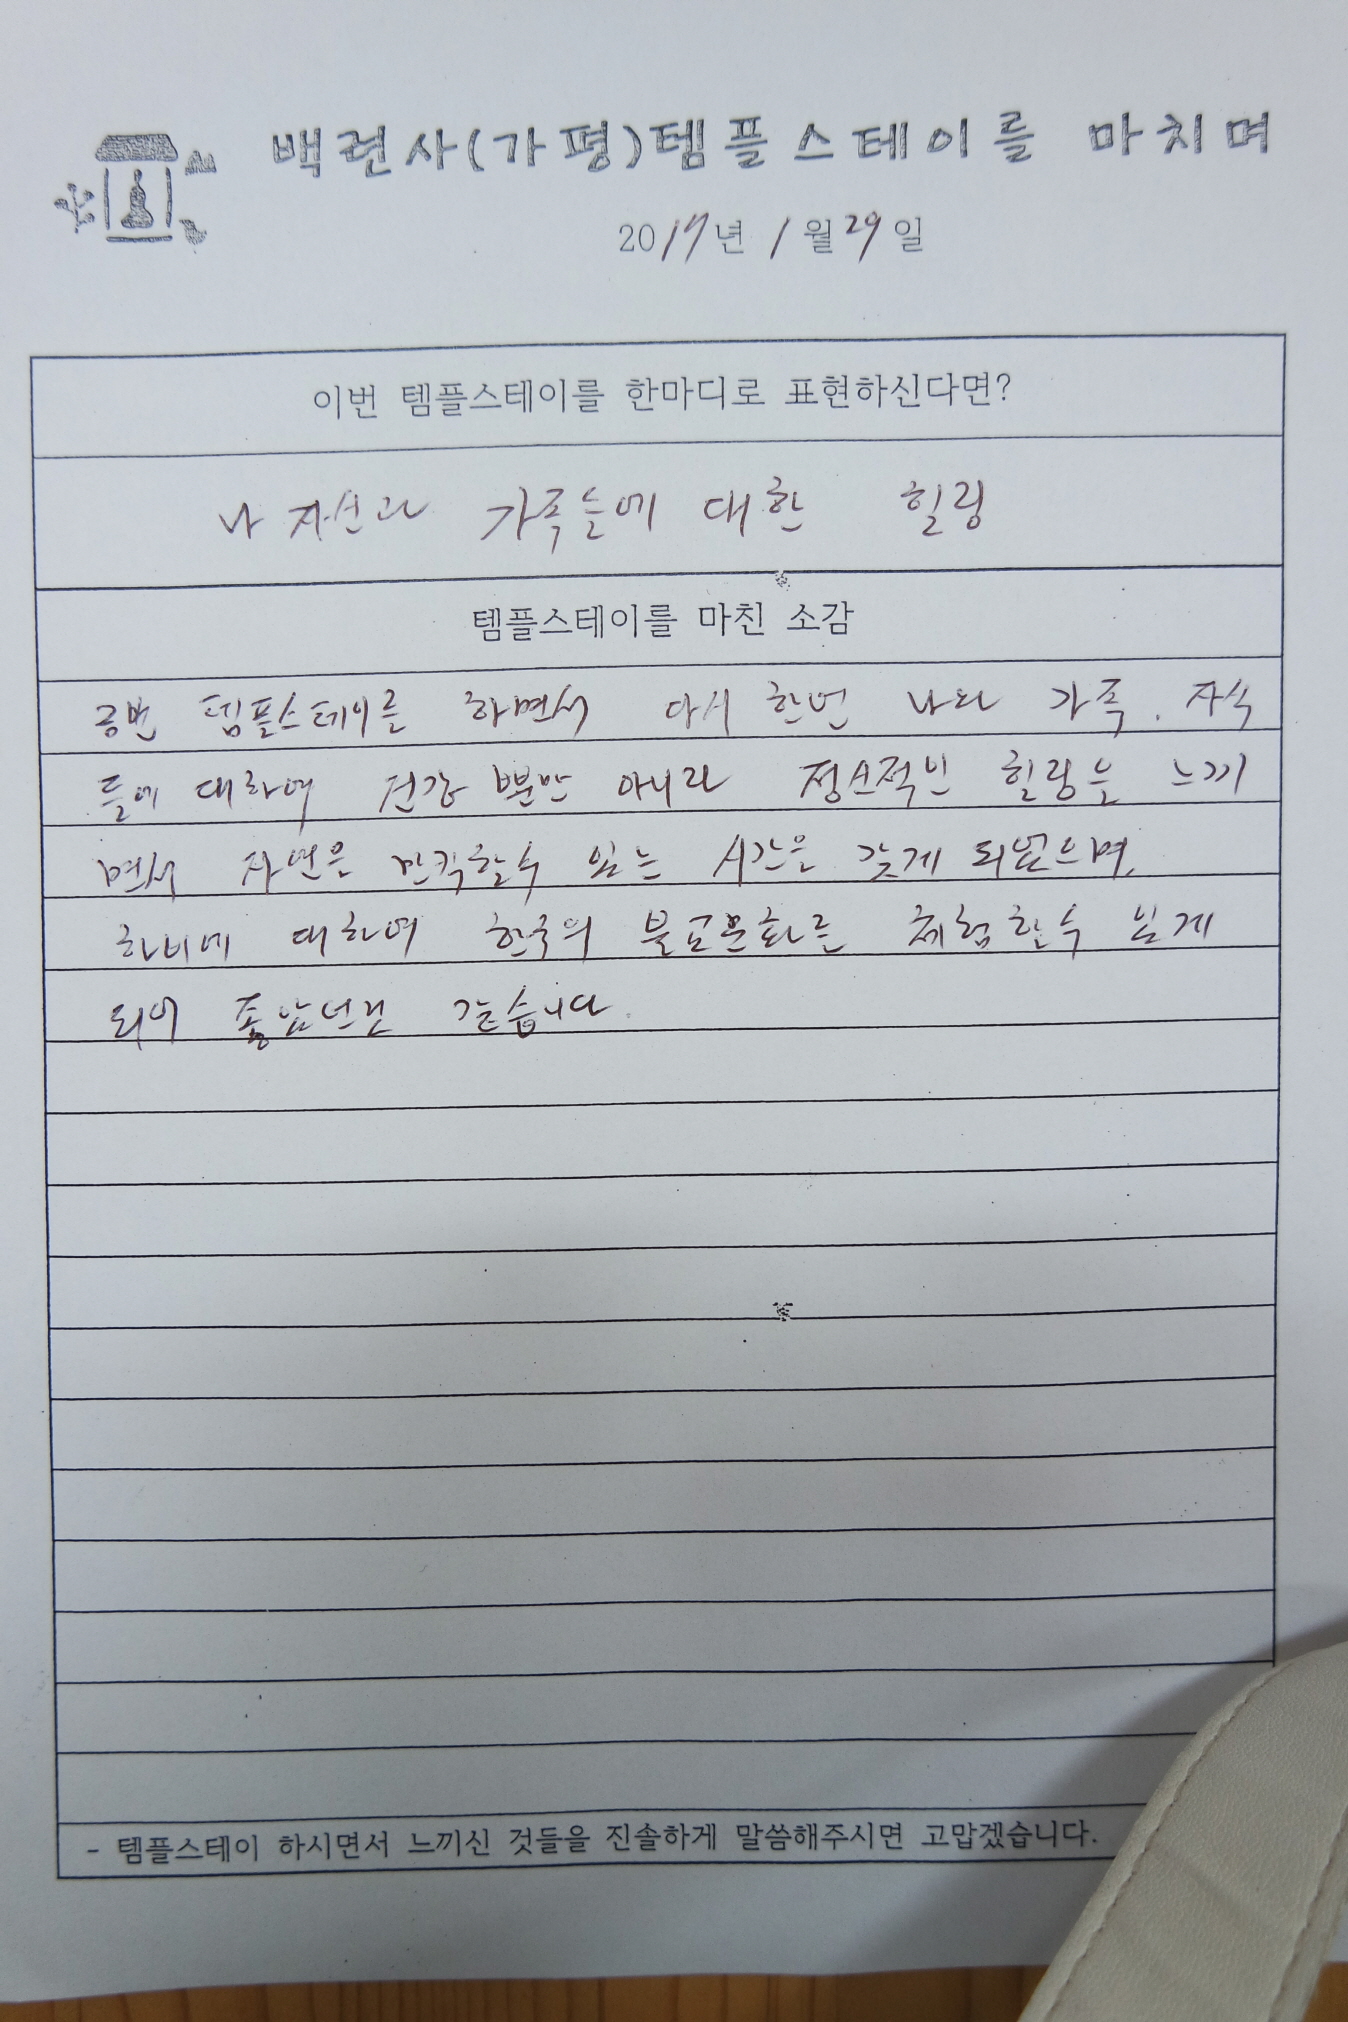 백련사(가평)템플스테이를 마치며
2017년 1월 29일
이번 템플스테이를 한마디로 표현하신다면?
나 자신과 가족들에 대한 힐링
템플스테이를 마친 소감
금번 템플스테이를 하면서 다시 한번 나와 가족. 자식
들에 대하여 건강 뿐만 아니라 정신적인 힐링을 느끼
면서 자연을 만끽할수 있는 시간을 갖게 되었으며,
대하여 한국의 불교문화를 체험할수 있게
되어 좋았던것 같습니다.
- 템플스테이 하시면서 느끼신 것들을 진솔하게 말씀해주시면 고맙겠습니다.